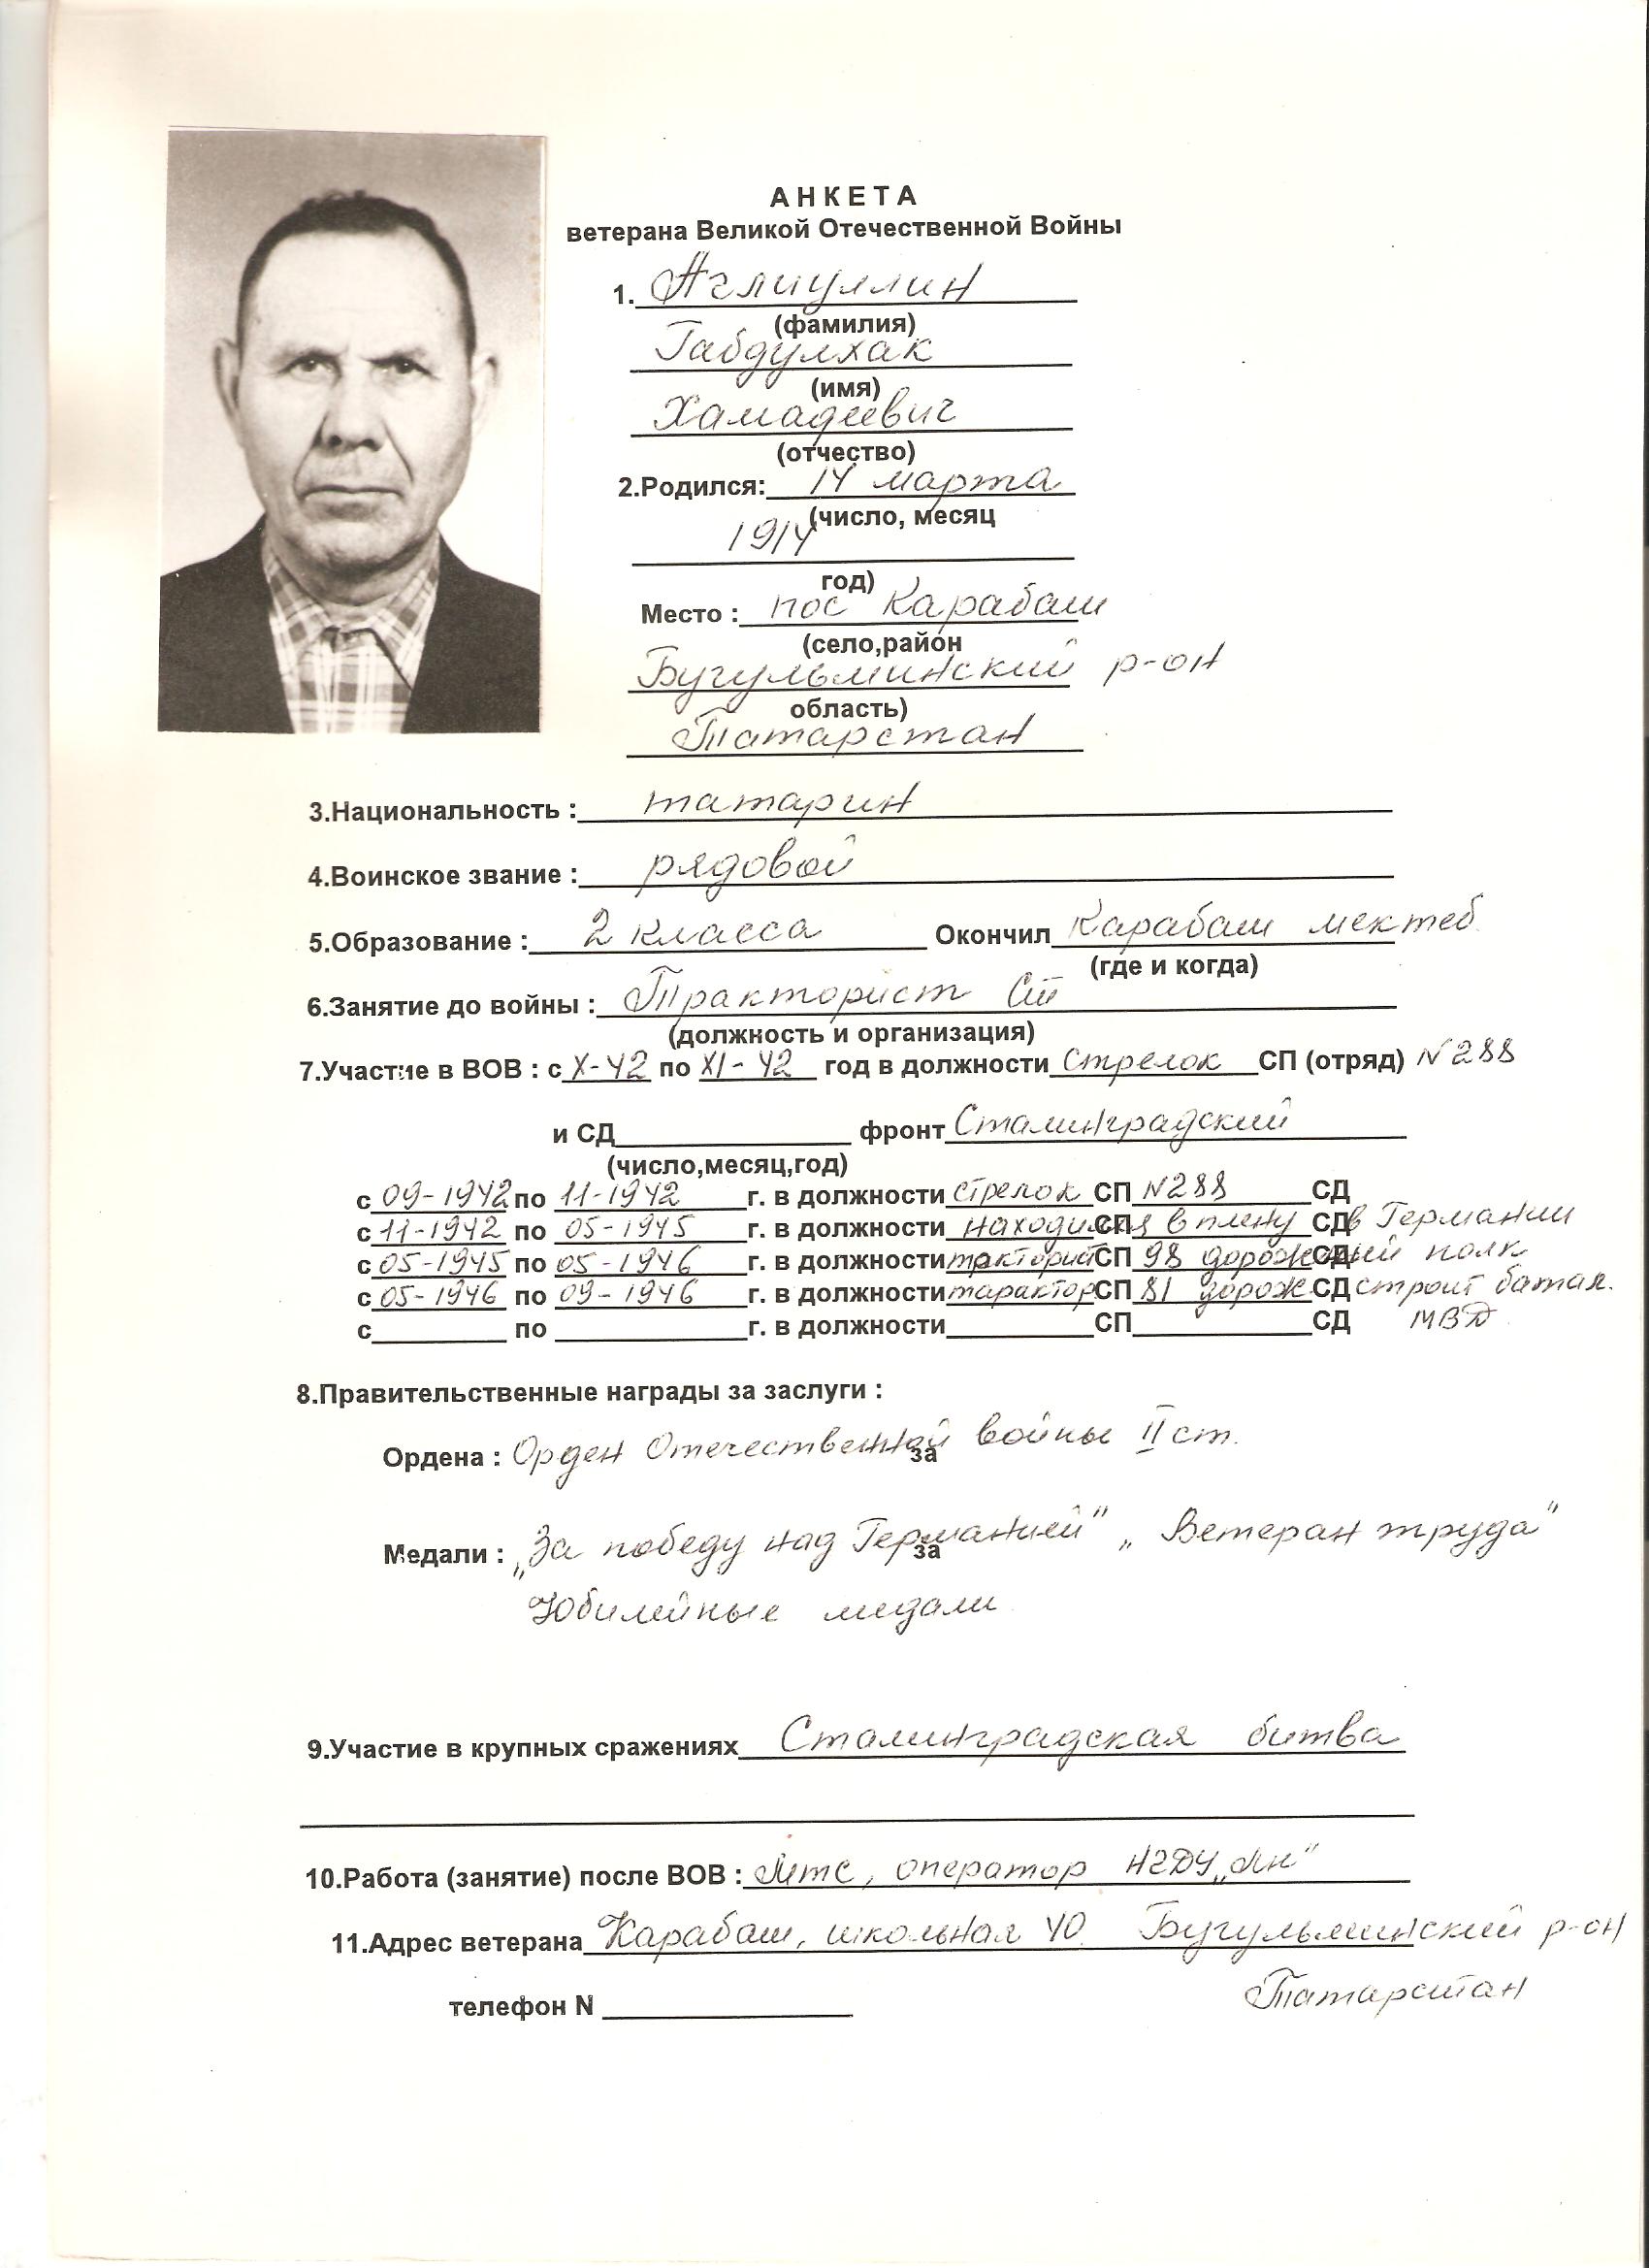 АНКЕТА
ветерана Великой Отечественной Войны
1. Аглиуллин
(фамилия)
Габдулхак
(имя)
Хамадеевич
(отчество)
2.Родился: 14 марта
(число, месяц
1914
год)
Место : пос Карабаш
(село,район
Бугульминский р-он
область)
Татарстан
3.Национальность : татарин
4.Воинское звание : рядовой
5.Образование : 2 класса Окончил Карабаш мектеб
(где и когда)
6.Занятие до войны : Тракторист
(должность и организация)
7.Участие в ВОВ : с X-42 по XI-42 год в должности Стрелок СП (отряд) N288
и СД фронт Сталинградский
(число,месяц,год)
с 09-1942 по 11-1942 г. в должности стрелок СП N288 СД
с 11-1942 по 05-1945 г. в должности находился СП в плену СД в Германии
с 05-1945 по 05-1946 г. в должности тракторист СП 98 дорожный СД полк
с 05-1946 по 09-1946 г. в должности тарактор СП 81 дорож СД строит батал.
с по г. в должности СП СД МВД
8.Правительственные награды за заслуги :
Ордена : Орден Отечественной за войны II ст.
Медали : „За победу над Германией" за „Ветеран труда"
Юбилейные медали
9.Участие в крупных сражениях Сталинградская битва
10.Работа (занятие) после ВОВ : МТС, оператор НГДУ „ЛН"
11.Адрес ветерана Карабаш, школьная 40. Бугульминский р-он
Татарстан
телефон N